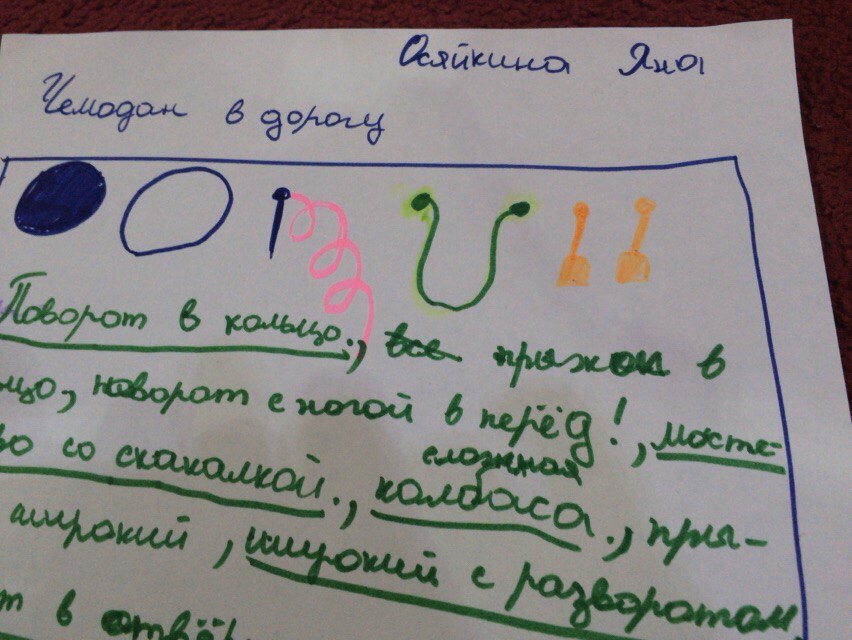 Осяйкина Яна
Чемодан в дорогу
Поворот в кольцо., все прыжок в
цо, поворот с ногой в перёд!, мосте-
во со скакалкой., сложная колбаса., пры-
широкий, широкий с разворотом
т в